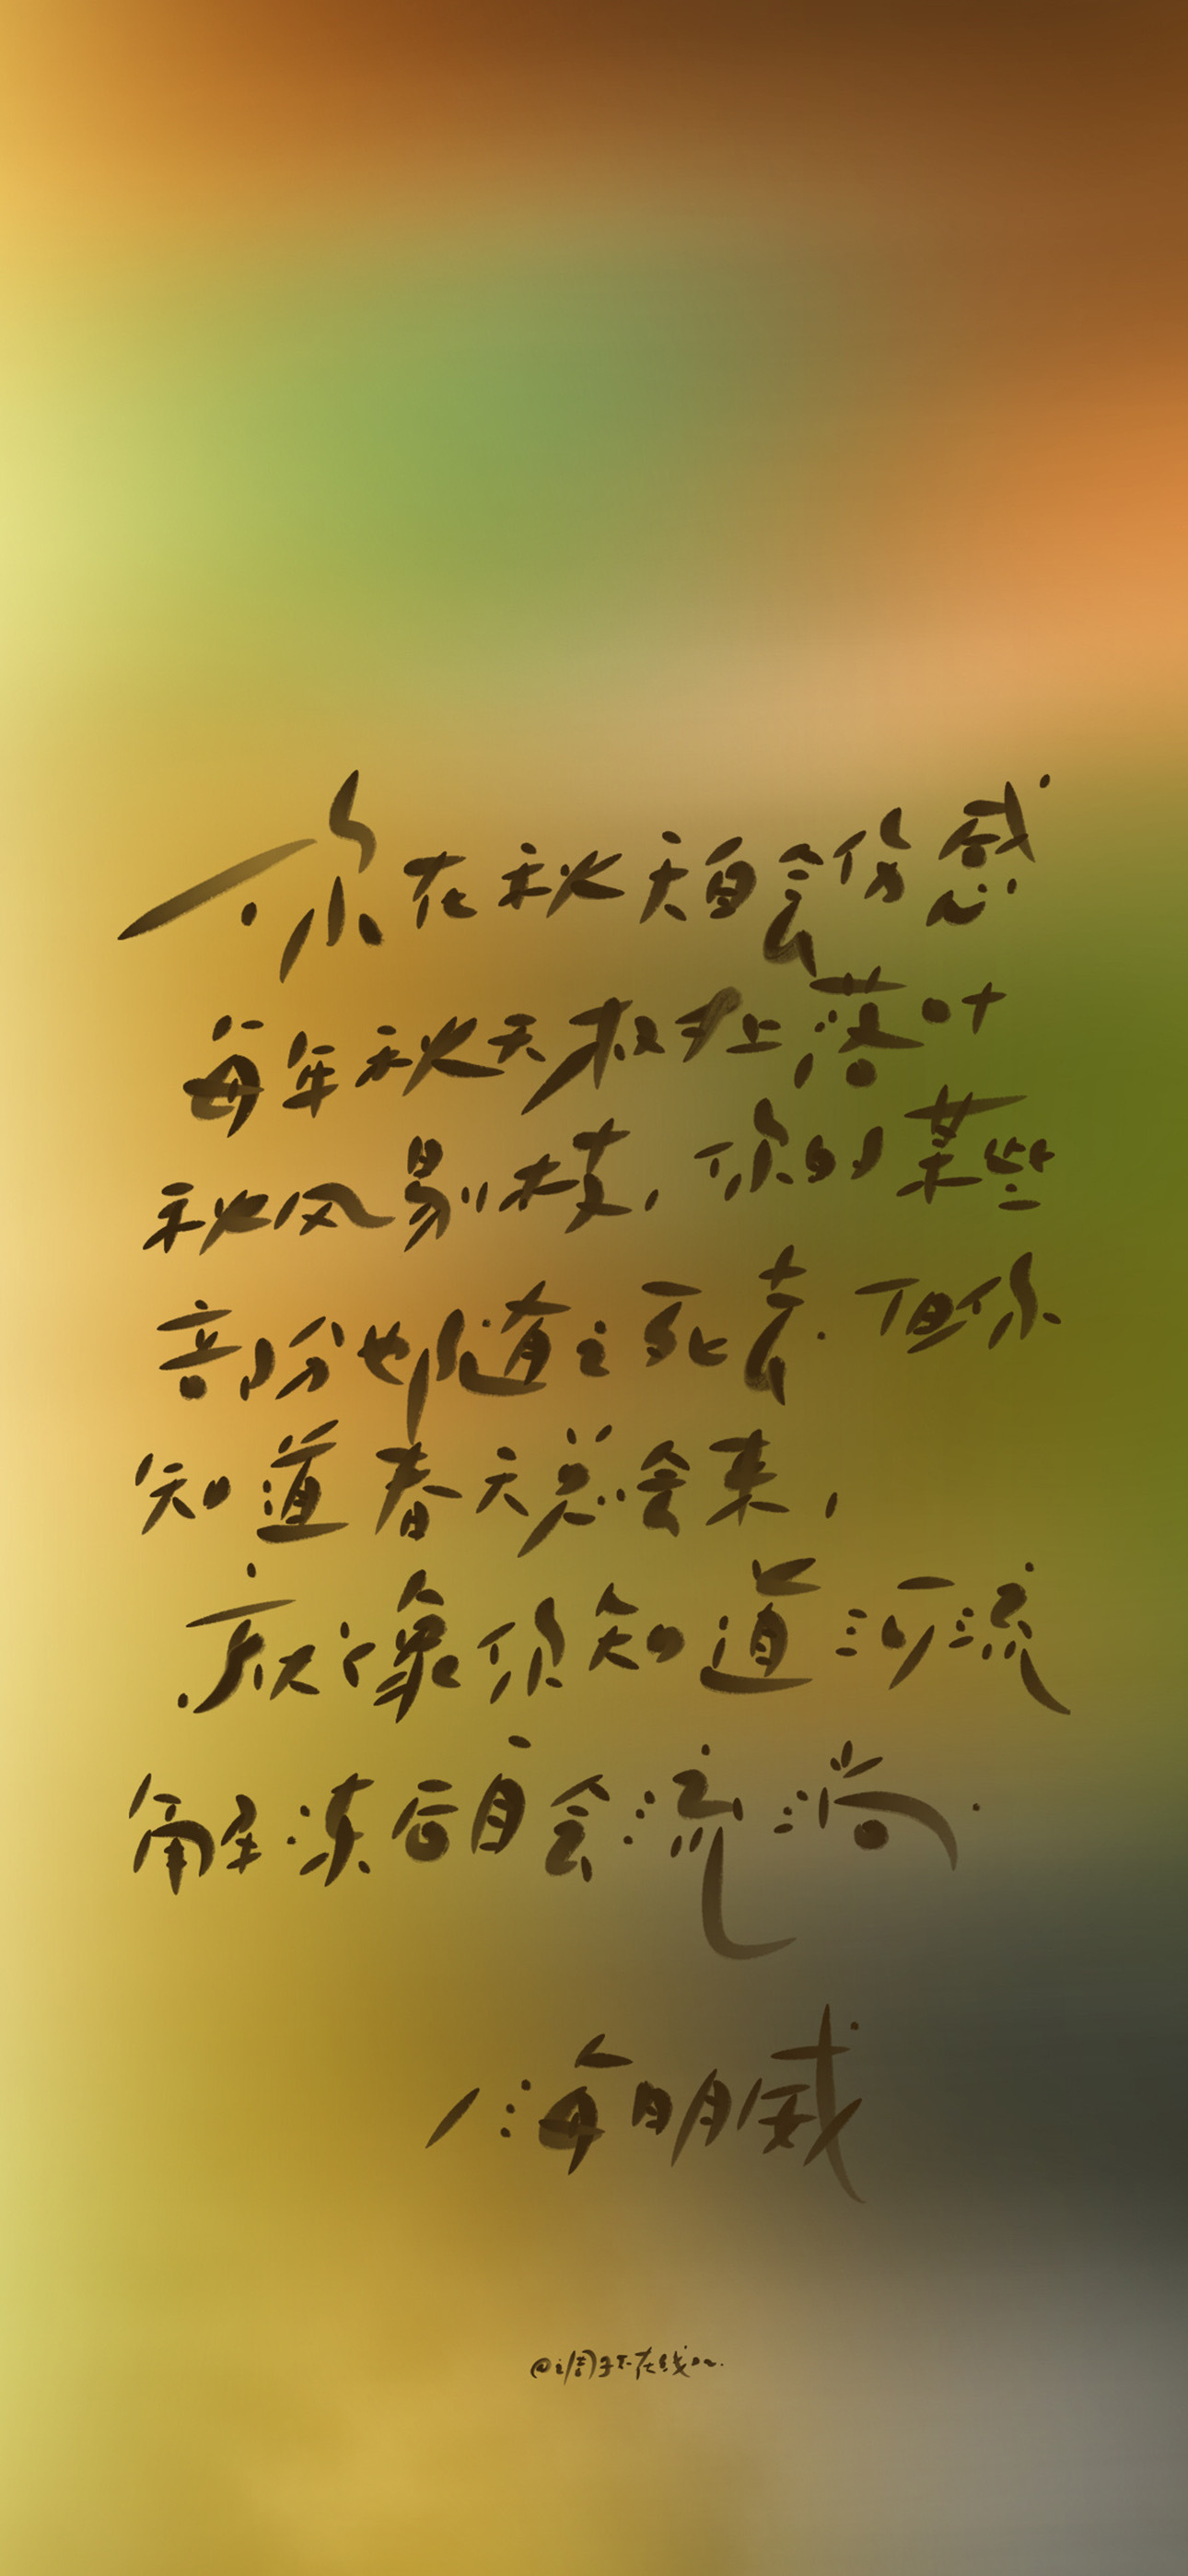 你在秋天自会伤感
每年秋天树上落叶
秋风剔枝，你的某些
部份也随之死去．但你
知道春天总会来，
就像你知道河流
解冻后自会流淌．
/海明威